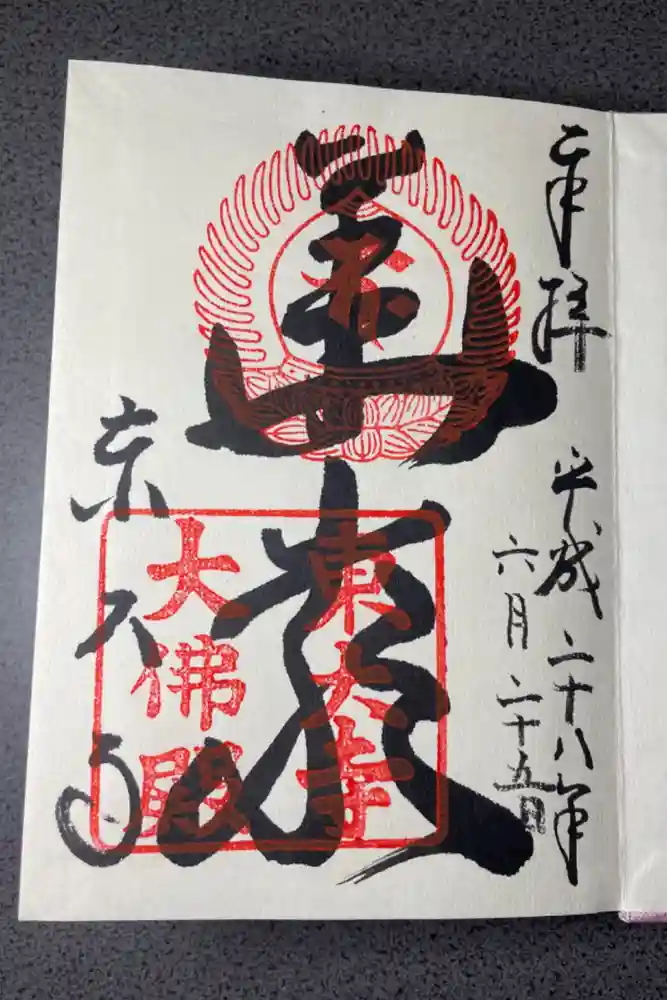 奉拝
平成二十八年
六月二十五日
華厳
東大寺
東大寺
大佛殿